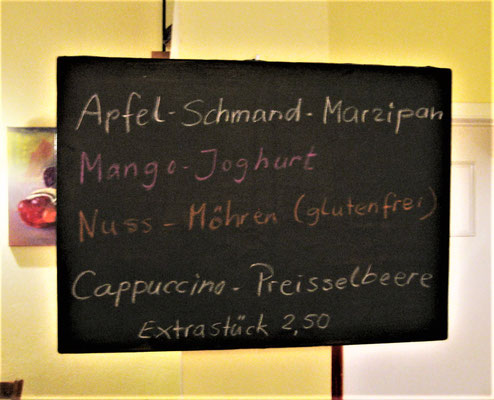 Apfel-Schmand-Marzipan
Mango-Joghurt
Nuss-Möhren (glutenfrei)
Cappuccino-Preisselbeere
Extrastück 2,50